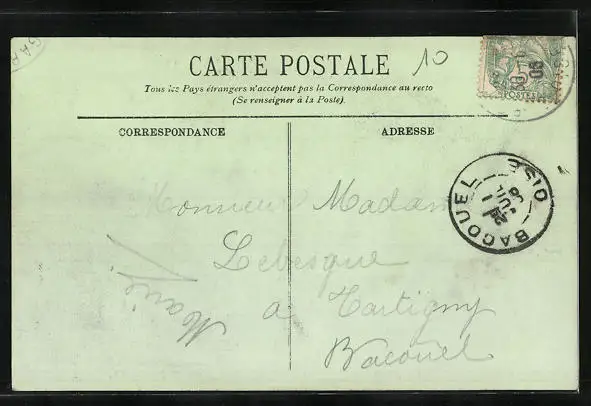 CARTE POSTALE
10
Tous les Pays étrangers n'acceptent pas la Correspondance au recto
(Se renseigner à la Poste).
CORRESPONDANCE
ADRESSE
POSTES
06
BACOUEL OISE
Monsieur Madame
Lebesque
a Tartigny
Bacouel
Marie